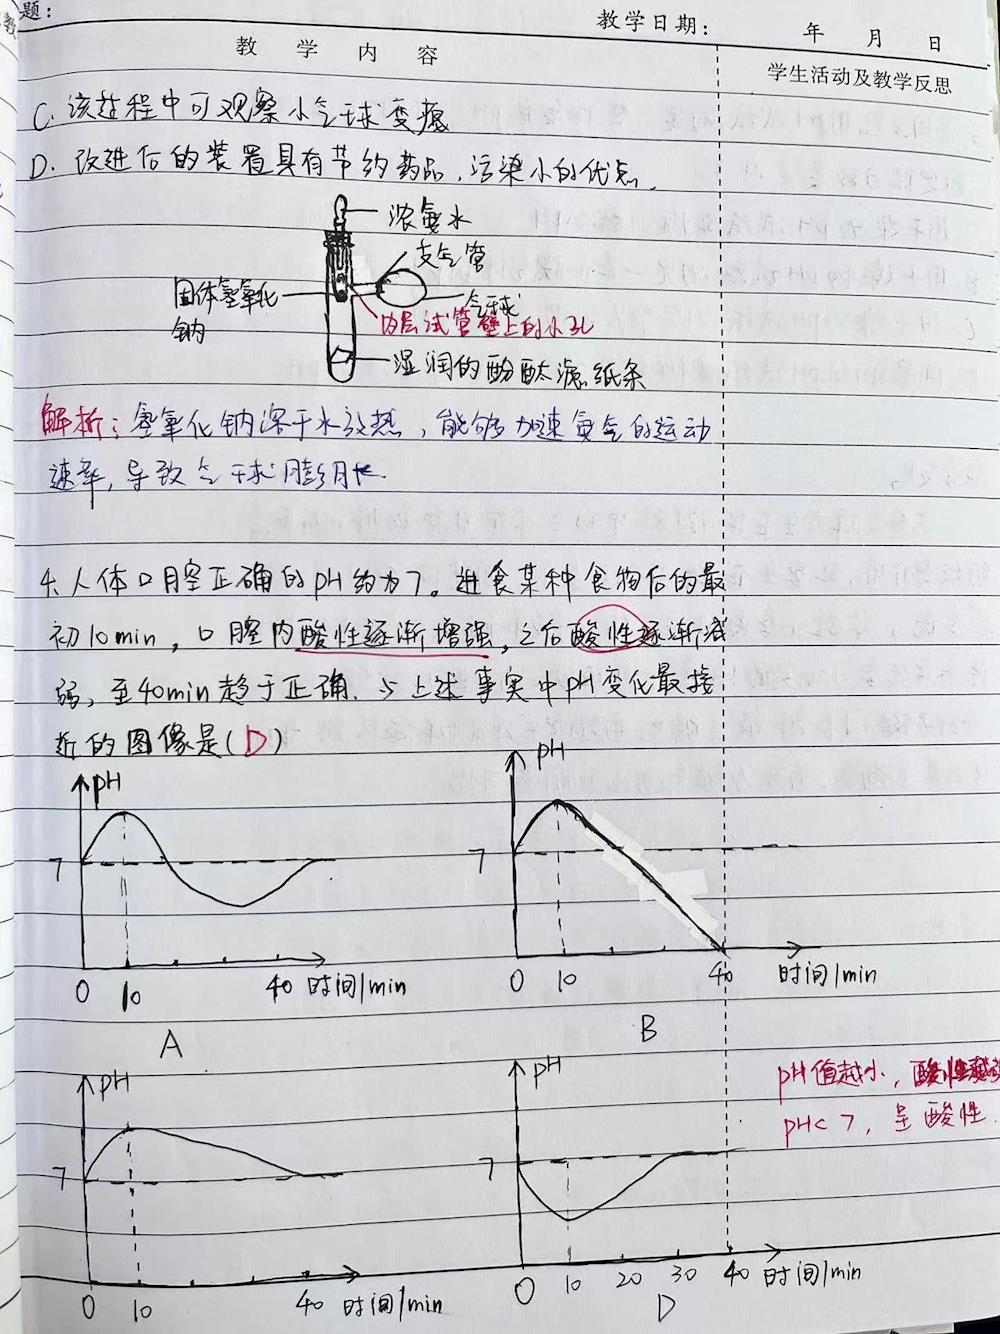 题：
教学日期：
年 月 日
教 学 内 容
学生活动及教学反思
C. 该过程中可观察小气球变瘪
D. 改进后的装置具有节约药品、污染小的优点.
浓氨水
支气管
固体氢氧化
钠
气球
内层试管壁上的小孔
湿润的酚酞滤纸条
解析：氢氧化钠溶于水放热，能够加速氨气的运动
速率，导致气球膨胀.
4. 人体口腔正确的pH约为7。进食某种食物后的最
初10min，口腔内酸性逐渐增强，之后酸性逐渐减
弱，至40min趋于正确.→上述事实中pH变化最接
近的图像是(D)
pH
7
0 10 40 时间/min
A
pH
7
0 10 40 时间/min
B
pH
7
0 10 40 时间/min
pH
7
0 10 20 30 40 时间/min
D
pH值越小，酸性越强
pH<7，呈酸性.